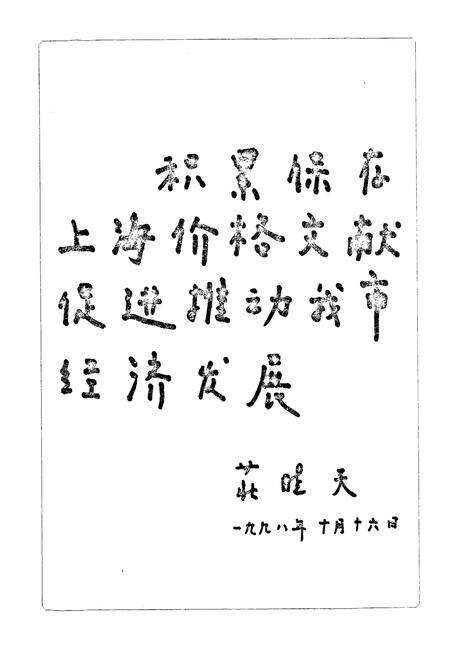 积累保存
上海价格文献
促进推动我市
经济发展
莊晓天
一九九八年十月十六日